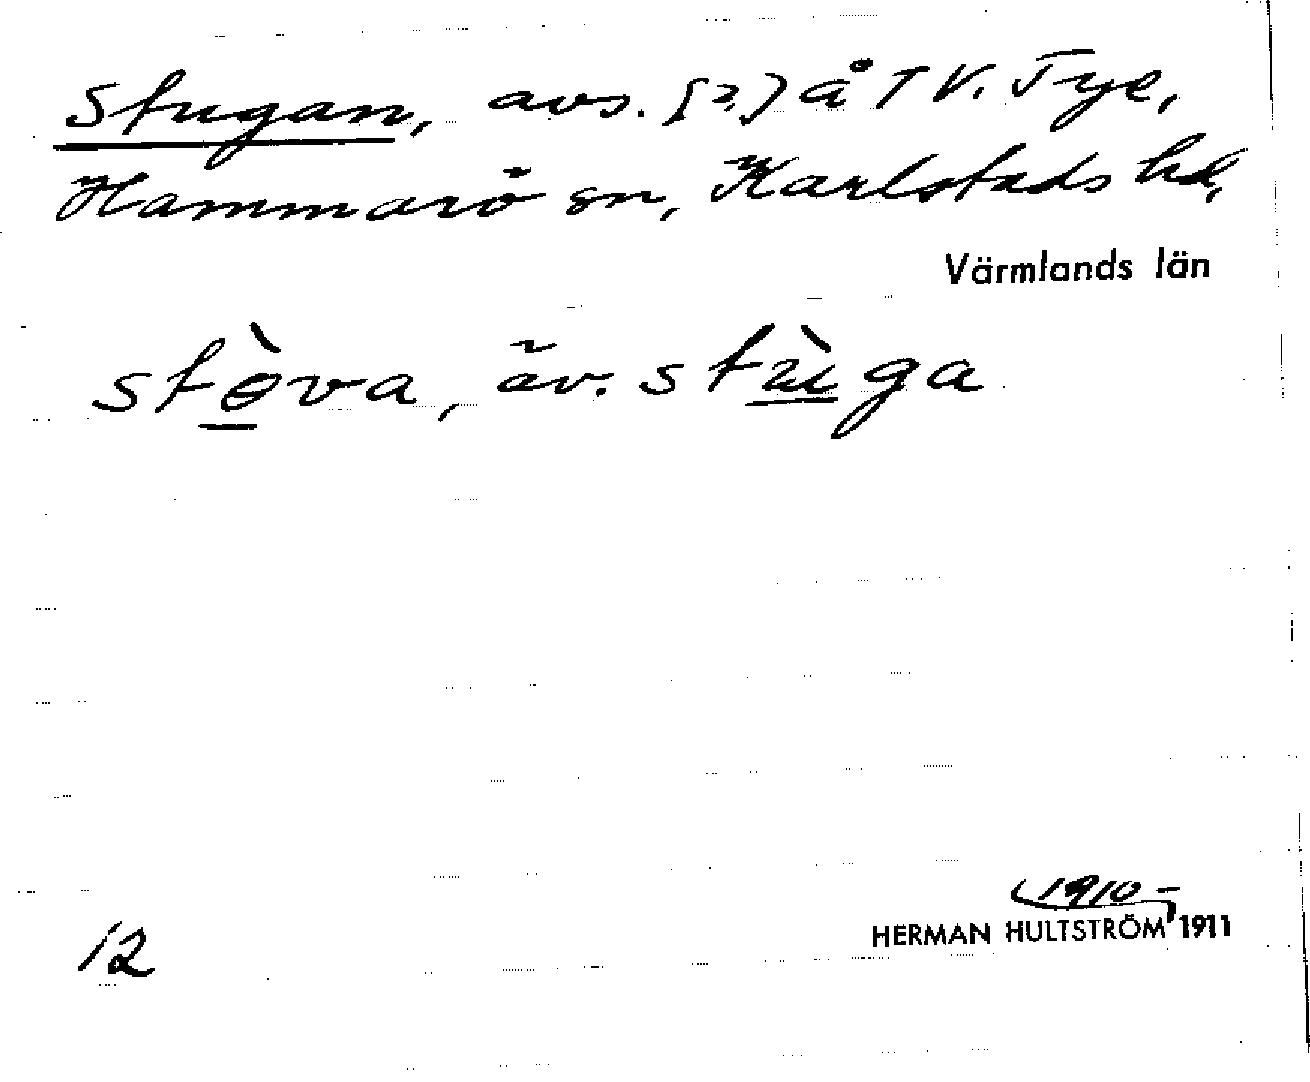 Stugan, avs. [?] å T V. Tye,
Hammarö sn, Karlstads hd,
Värmlands län
stɵ̀va, äv. stùga
1910-
HERMAN HULTSTRÖM 1911
12